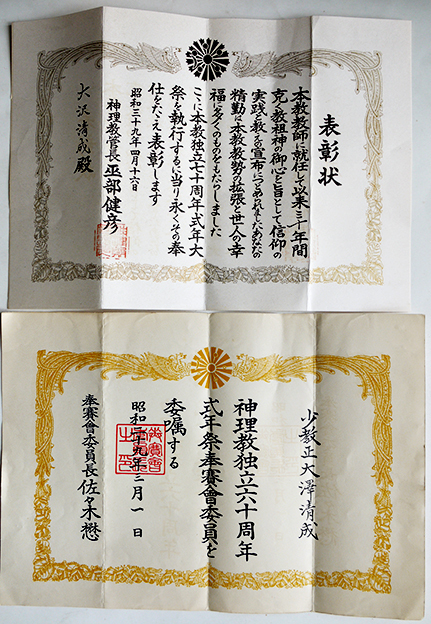 表彰状
本教教師に就任して以来三十年間
克く教祖神の御心を旨として信仰の
実践と教えの宣布につとめられましたあなたの
精勤は本教教勢の拡張と世人の幸
福に多くのものをもたらしました
ここに本教独立七十周年式年大
祭を執行するに当り永くその奉
仕をたたえ表彰します
昭和三十九年四月十六日
神理教管長 巫部健彦
大沢清成殿
少教正大澤清成
神理教独立六十周年
式年祭奉賽會委員を
委嘱する
昭和二十九年三月一日
奉賽會委員長 佐々木懋